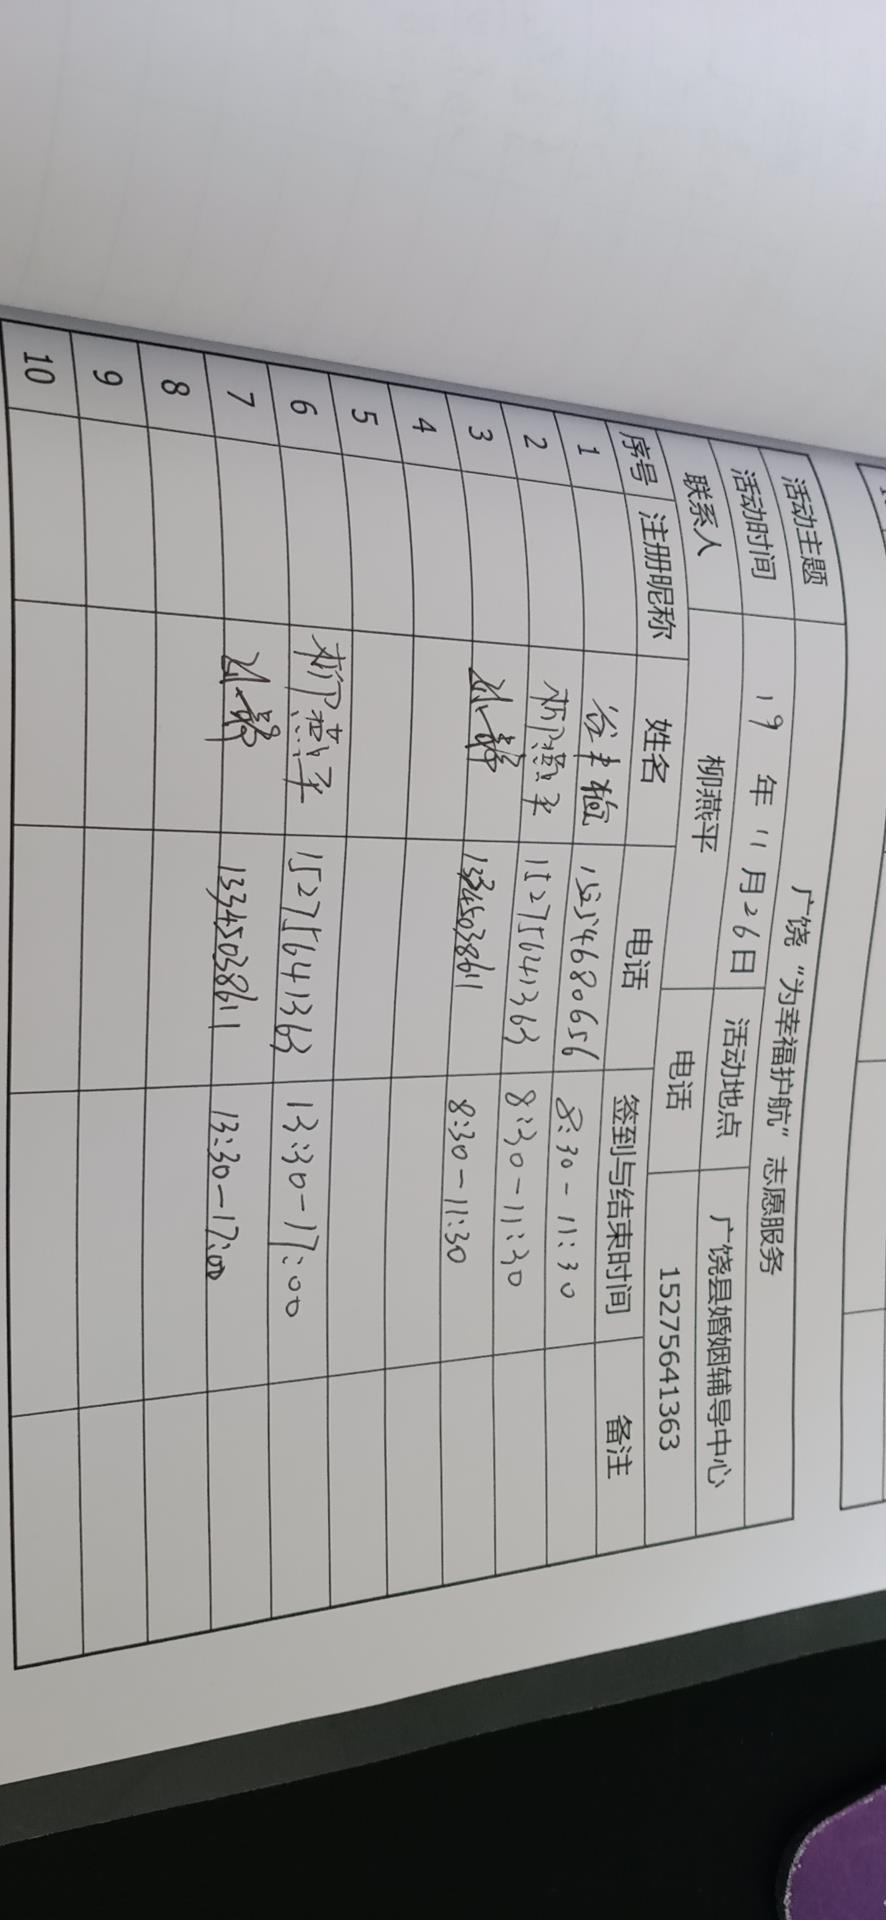 活动主题 广饶“为幸福护航”志愿服务
活动时间 19 年 11 月 26 日 活动地点 广饶县婚姻辅导中心
联系人 柳燕平 电话 15275641363
序号 注册昵称 姓名 电话 签到与结束时间 备注
1 8:30-11:30
2 柳燕平 15275641363 8:30-11:30
3 13345038611 8:30-11:30
4
5
6 柳燕平 15275641363 13:30-17:00
7 13345038611 13:30-17:00
8
9
10